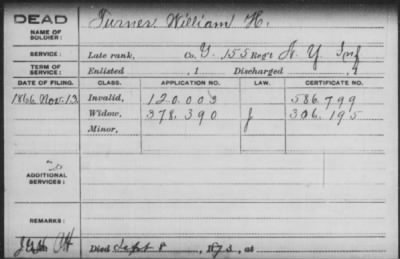 DEAD
NAME OF SOLDIER: Turner William H.
SERVICE: Late rank, Co. G. 155 Reg't N. Y. Inf
TERM OF SERVICE: Enlisted , 1 Discharged , 1
DATE OF FILING. CLASS. APPLICATION NO. LAW. CERTIFICATE NO.
1866 Nov. 13. Invalid, 120.003 586.799
Widow, 378.390 306.195
Minor,
ADDITIONAL SERVICES:
REMARKS:
Died Sept 8, 187 , at